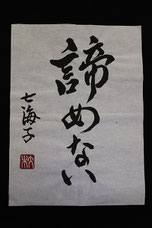 諦めない
七海子